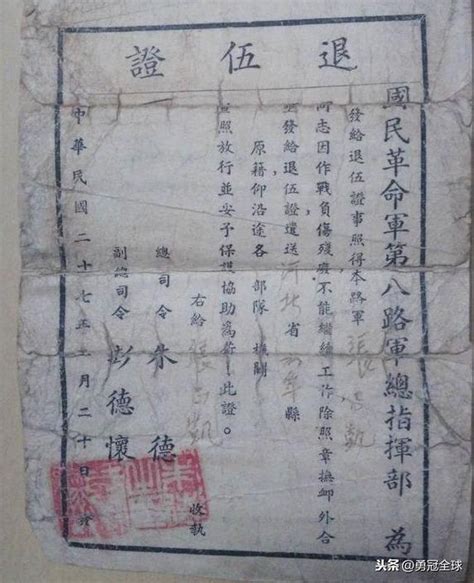 退伍證
國民革命軍第八路軍總指揮部 為
發給退伍證事照得本路軍張
同志因作戰負傷殘廢不能繼續工作除照章撫卹外合
發給退伍證遣送河北省 縣
原籍仰沿途各部隊機關
照放行並妥予保護協助為荷此證。
右給張 凱 收執
總司令 朱德
副總司令 彭德懷
中華民國二十七年 月二十日
头条@勇冠全球